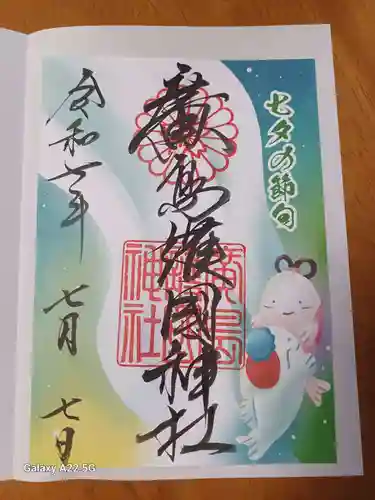 七夕の節句
廣島護國神社
廣島護國神社
令和七年
七月
七日
Galaxy A22 5G